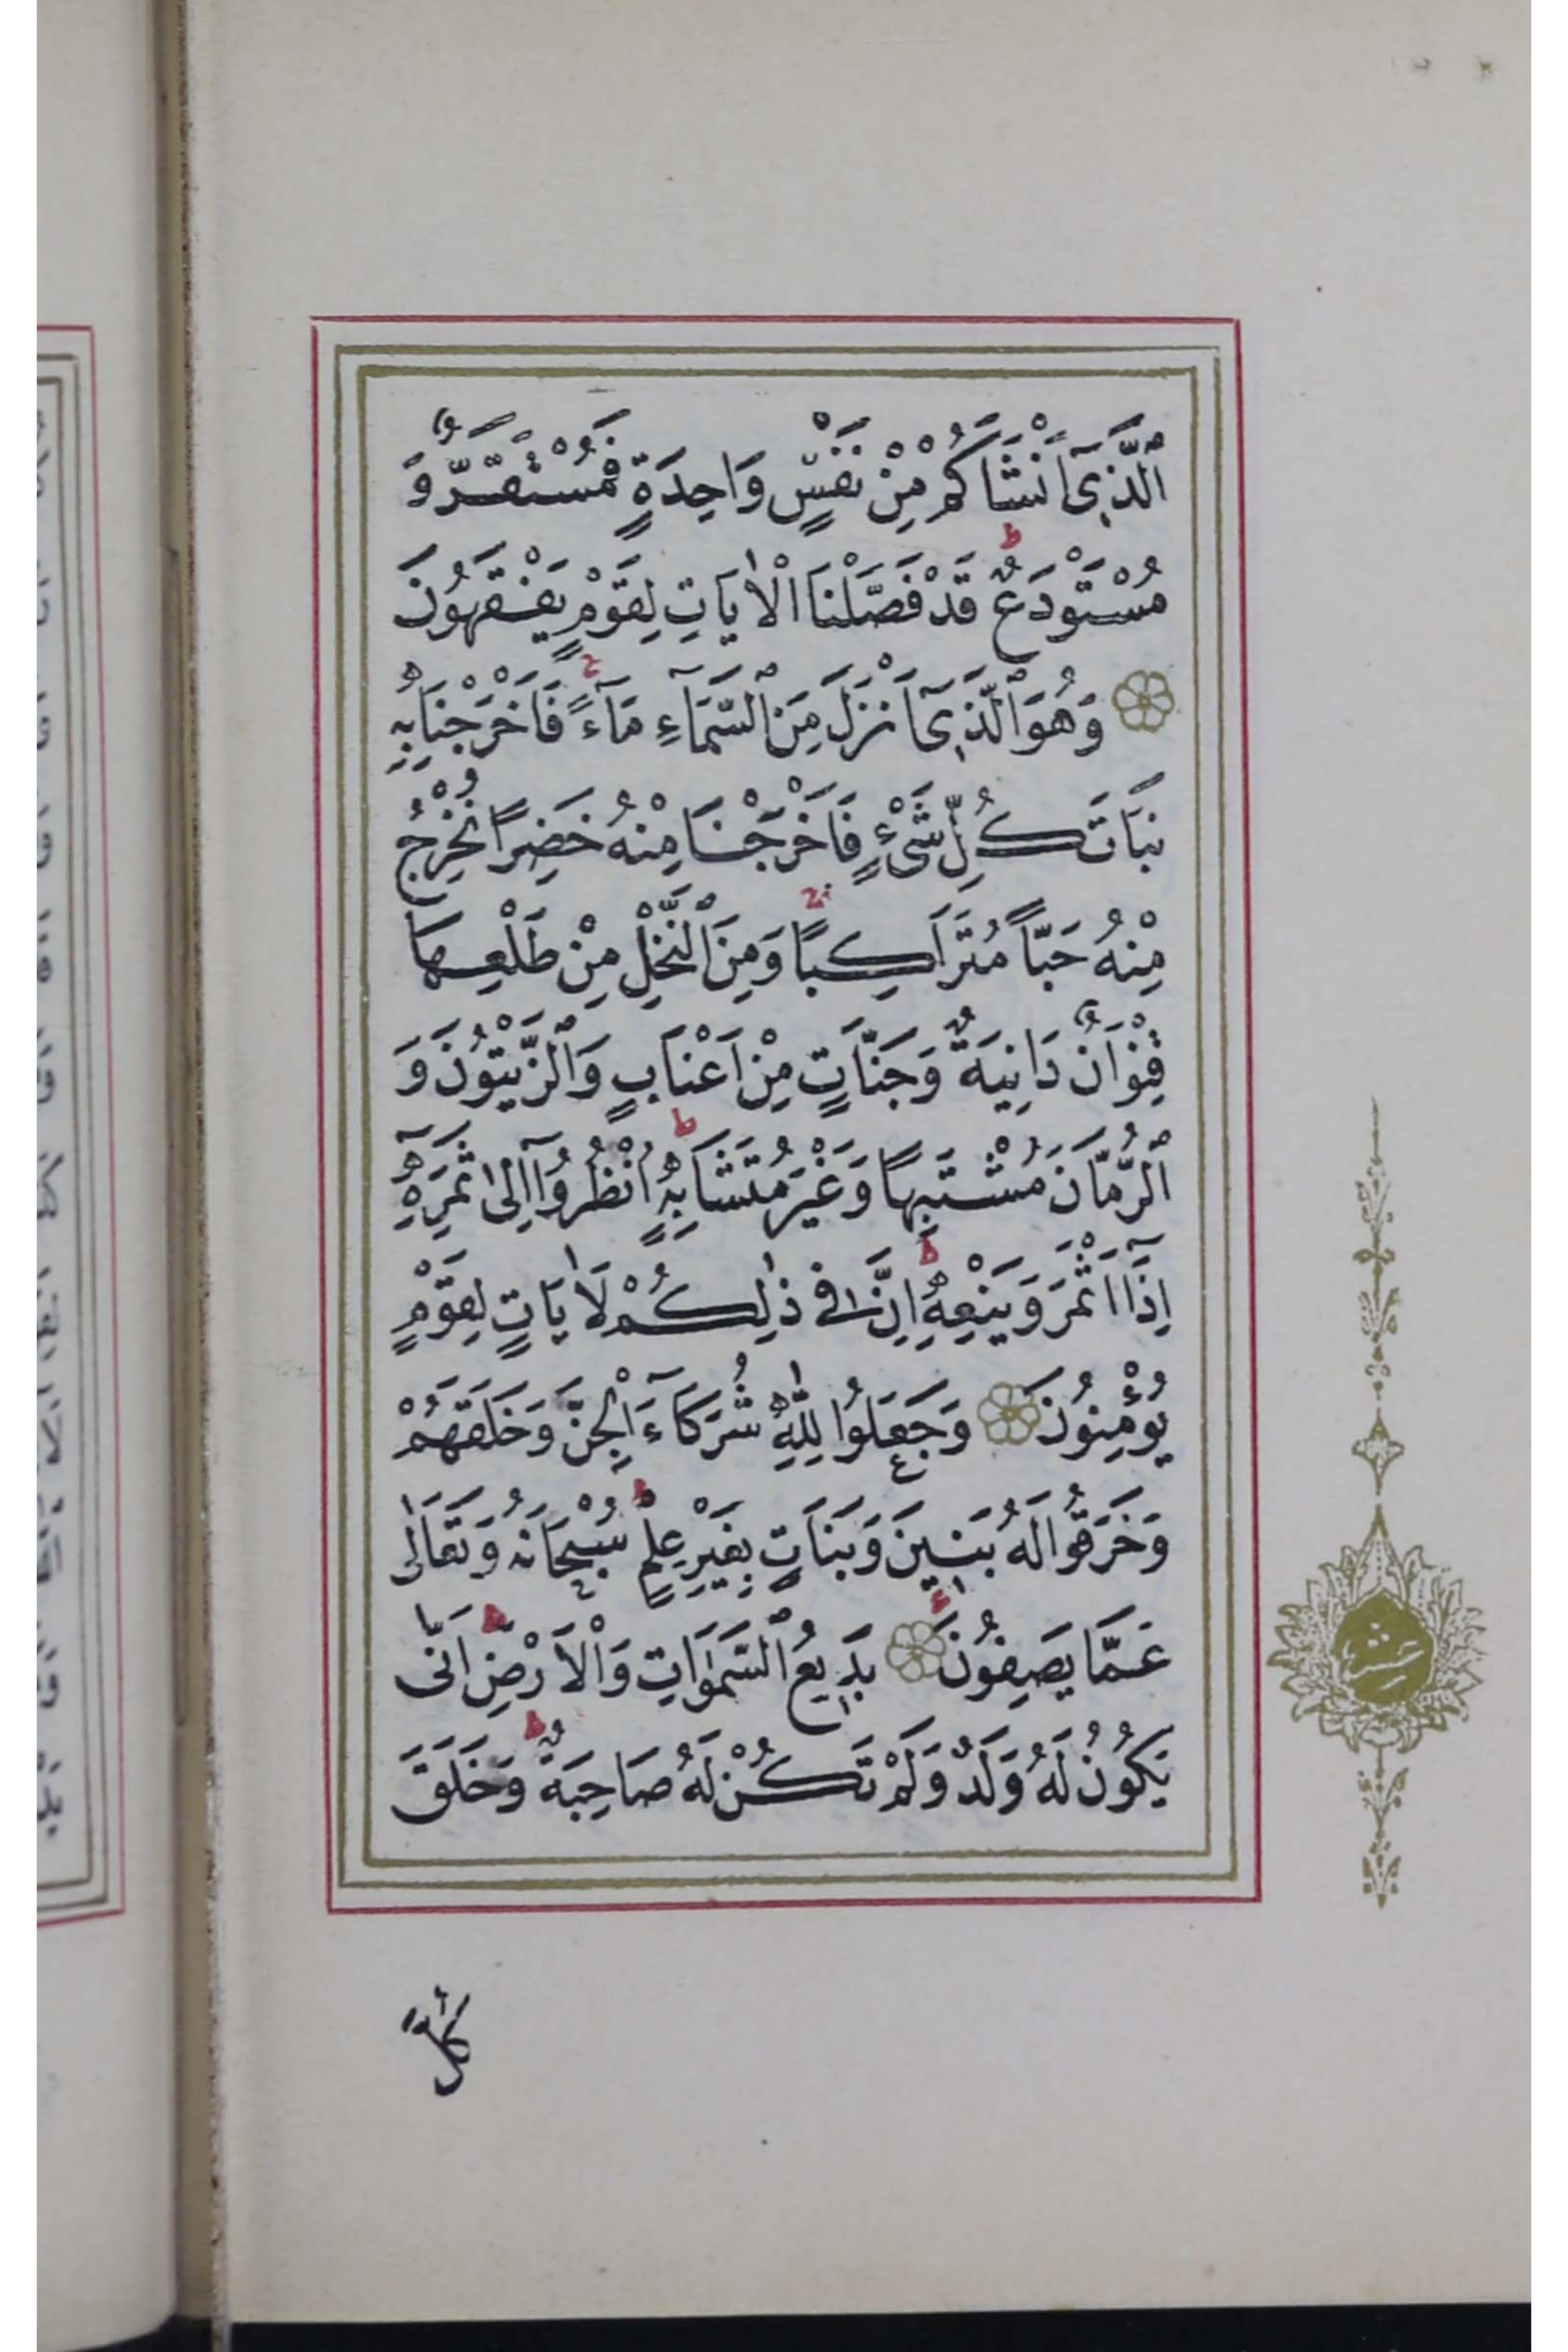 اَلَّذ۪ٓى اَنْشَاَكُمْ مِنْ نَفْسٍ وَاحِدَةٍ فَمُسْتَقَرٌّ وَ
مُسْتَوْدَعٌ قَدْ فَصَّلْنَا الْاٰيَاتِ لِقَوْمٍ يَفْقَهُونَ
وَهُوَ الَّذ۪ٓى اَنْزَلَ مِنَ السَّمَٓاءِ مَٓاءً فَاَخْرَجْنَا بِهٖ
نَبَاتَ كُلِّ شَىْءٍ فَاَخْرَجْنَا مِنْهُ خَضِرًا نُخْرِجُ
مِنْهُ حَبًّا مُتَرَاكِبًا وَمِنَ النَّخْلِ مِنْ طَلْعِهَا
قِنْوَانٌ دَانِيَةٌ وَجَنَّاتٍ مِنْ اَعْنَابٍ وَالزَّيْتُونَ وَ
الرُّمَّانَ مُشْتَبِهًا وَغَيْرَ مُتَشَابِهٍ اُنْظُرُٓوا اِلٰى ثَمَرِهٖٓ
اِذَٓا اَثْمَرَ وَيَنْعِهٖ اِنَّ فٖى ذٰلِكُمْ لَاٰيَاتٍ لِقَوْمٍ
يُؤْمِنُونَ وَجَعَلُوا لِلّٰهِ شُرَكَٓاءَ الْجِنَّ وَخَلَقَهُمْ
وَخَرَقُوا لَهُ بَنٖينَ وَبَنَاتٍ بِغَيْرِ عِلْمٍ سُبْحَانَهُ وَتَعَالٰى
عَمَّا يَصِفُونَ بَدٖيعُ السَّمٰوَاتِ وَالْاَرْضِ اَنّٰى
يَكُونُ لَهُ وَلَدٌ وَلَمْ تَكُنْ لَهُ صَاحِبَةٌ وَخَلَقَ
كُلَّ